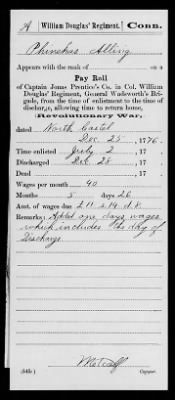 A | William Douglas' Regiment. | Conn.
Phinehas Alling
Appears with the rank of on a
Pay Roll
of Captain Jonas Prentice's Co. in Col. William
Douglas' Regiment, General Wadsworth's Bri-
gade, from the time of enlistment to the time of
discharge, allowing time to return home,
(Revolutionary War,)
dated North Castel
Dec 25, 1776.
Time enlisted July 2, 17
Discharged Dec 28, 17
Dead , 17
Wages per month 40
Months 5 days 26
Amt. of wages due £11 s.14 d.8
Remarks: one days wages
which includes the day of
Discharge
Metcalf
Copyist.